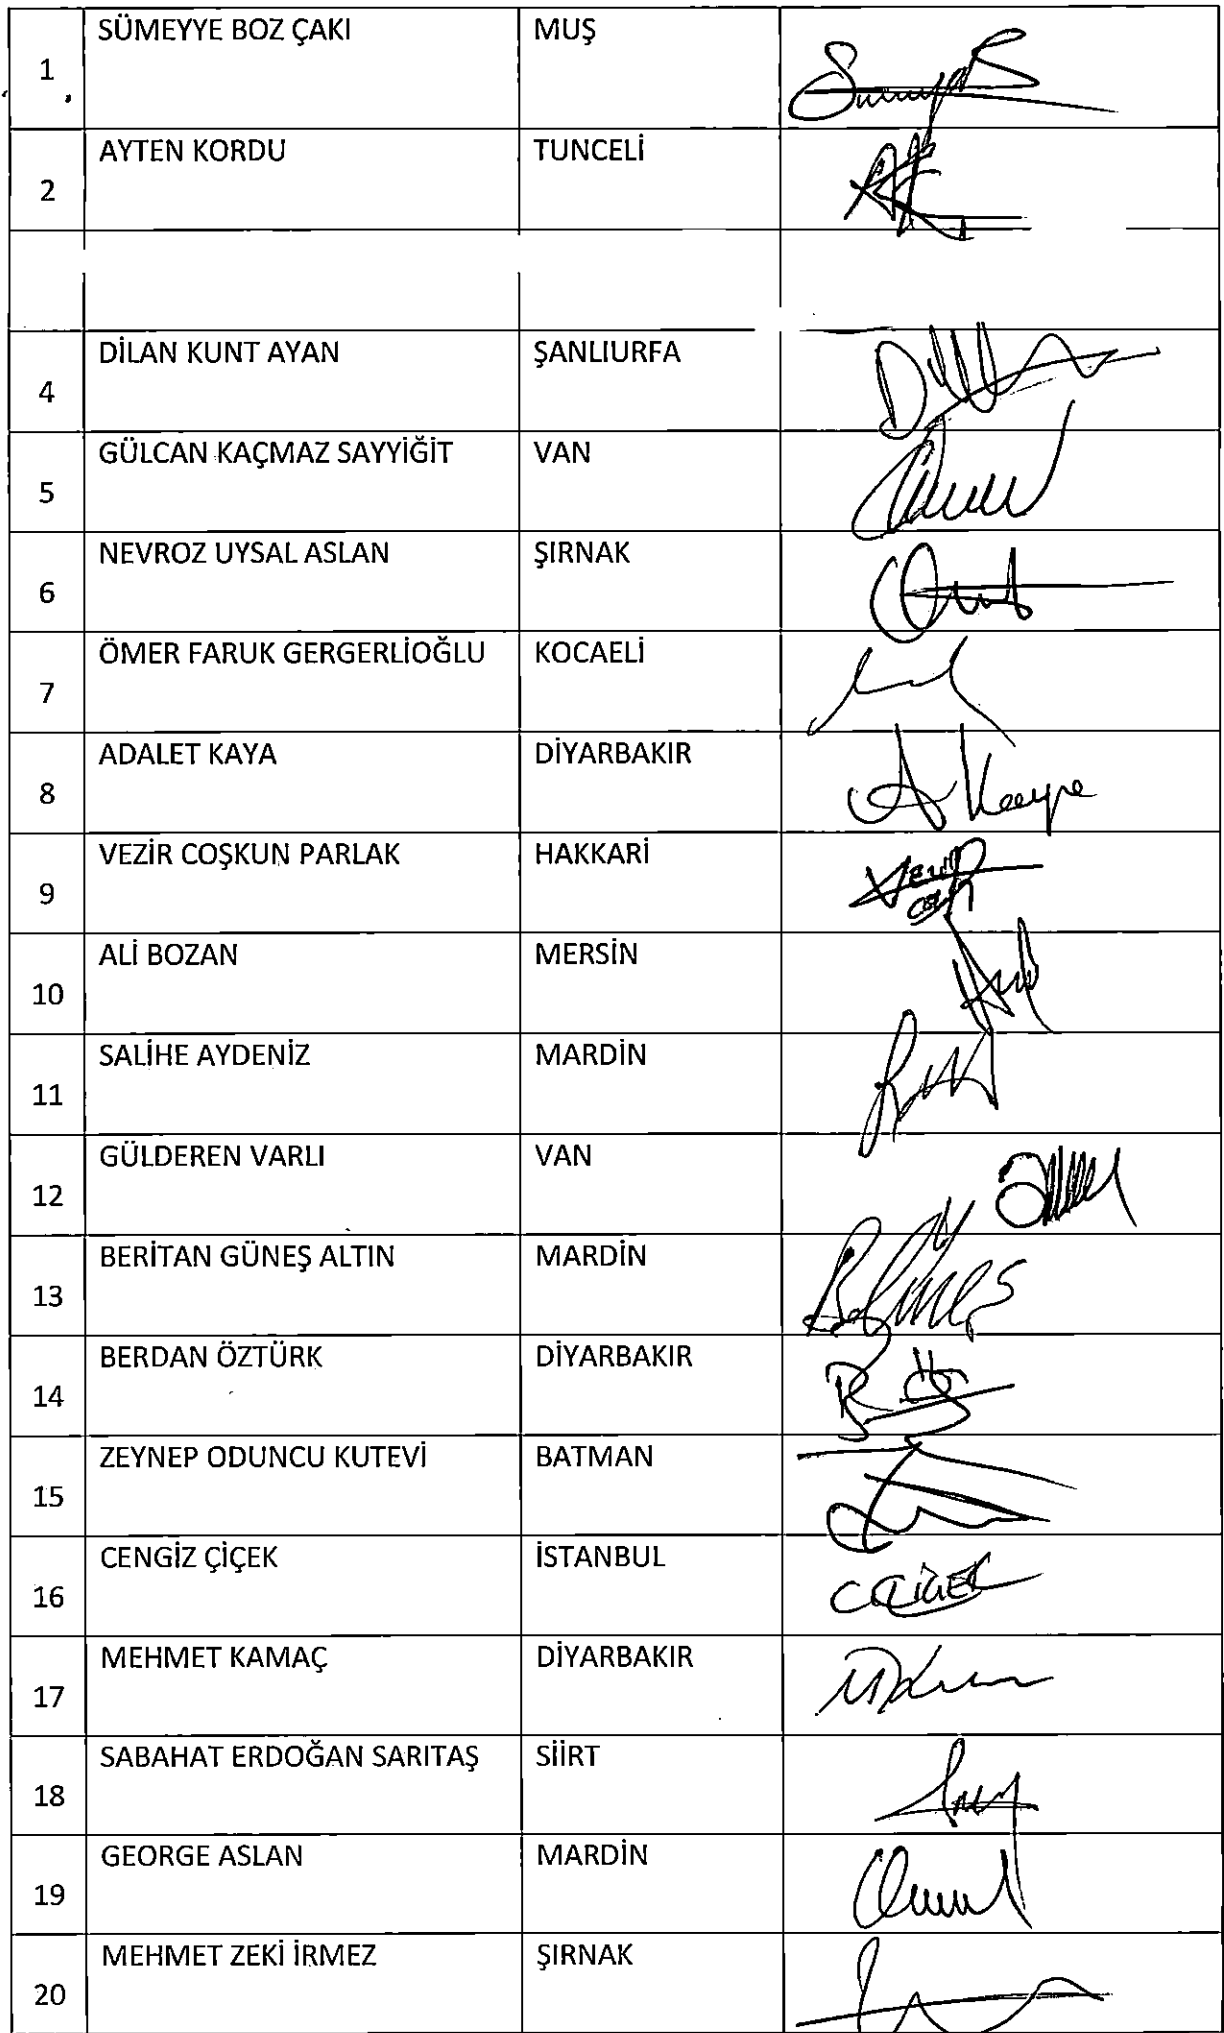 1 SÜMEYYE BOZ ÇAKI MUŞ
2 AYTEN KORDU TUNCELİ
4 DİLAN KUNT AYAN ŞANLIURFA
5 GÜLCAN KAÇMAZ SAYYİĞİT VAN
6 NEVROZ UYSAL ASLAN ŞIRNAK
7 ÖMER FARUK GERGERLİOĞLU KOCAELİ
8 ADALET KAYA DİYARBAKIR
9 VEZİR COŞKUN PARLAK HAKKARİ
10 ALİ BOZAN MERSİN
11 SALİHE AYDENİZ MARDİN
12 GÜLDEREN VARLI VAN
13 BERİTAN GÜNEŞ ALTIN MARDİN
14 BERDAN ÖZTÜRK DİYARBAKIR
15 ZEYNEP ODUNCU KUTEVİ BATMAN
16 CENGİZ ÇİÇEK İSTANBUL
17 MEHMET KAMAÇ DİYARBAKIR
18 SABAHAT ERDOĞAN SARITAŞ SİİRT
19 GEORGE ASLAN MARDİN
20 MEHMET ZEKİ İRMEZ ŞIRNAK